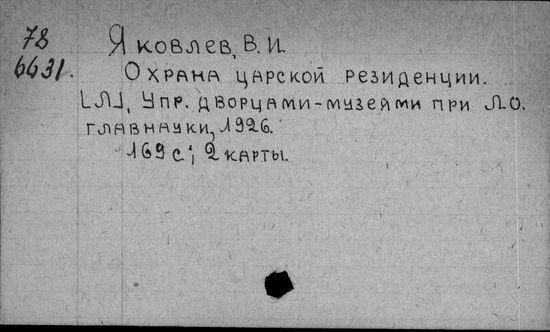 78
6631.
Яковлев, В. И.
Охрана царской резиденции.
[Л], Упр. дворцами-музеями при Л.О.
главнауки, 1926.
169 с.; 2 карты.